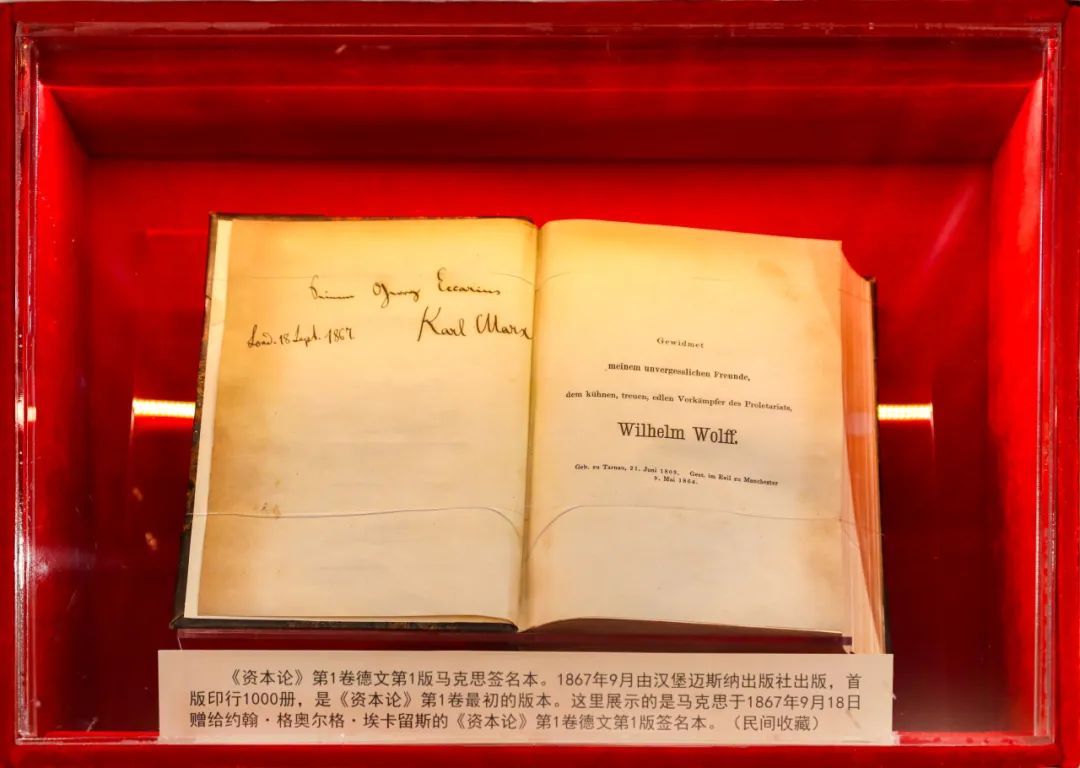 Georg Eccarius
Lond. 18 Sept. 1867. Karl Marx
Gewidmet
meinem unvergesslichen Freunde,
dem kühnen, treuen, edlen Vorkämpfer des Proletariats,
Wilhelm Wolff.
Geb. zu Tarnau, 21. Juni 1809. Gest. im Exil zu Manchester
9. Mai 1864.
《资本论》第1卷德文第1版马克思签名本。1867年9月由汉堡迈斯纳出版社出版，首
版印行1000册，是《资本论》第1卷最初的版本。这里展示的是马克思于1867年9月18日
赠给约翰·格奥尔格·埃卡留斯的《资本论》第1卷德文第1版签名本。（民间收藏）